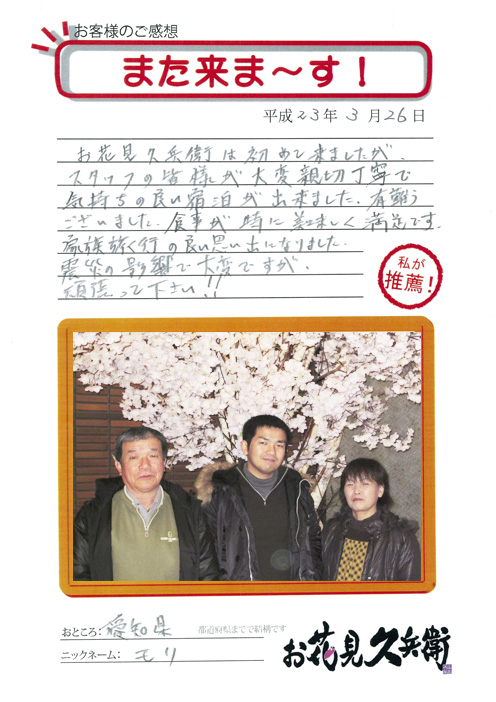 お客様のご感想
また来ま〜す！
平成23年3月26日
お花見久兵衛は初めて来ましたが、
スタッフの皆様が大変親切丁寧で
気持ちの良い宿泊が出来ました。有難う
ございました。食事が特に美味しく満足です。
家族旅行の良い思い出になりました。
震災の影響で大変ですが、
頑張って下さい!!
私が
推薦！
おところ：愛知県 都道府県までで結構です
ニックネーム：モリ
お花見久兵衛